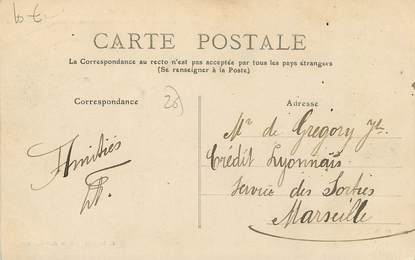 CARTE POSTALE
La Correspondance au recto n'est pas acceptée par tous les pays étrangers
(Se renseigner à la Poste)
Correspondance
20
Adresse
Amitiés
Mr de Gregory
Crédit Lyonnais
Service des Sorties
Marseille